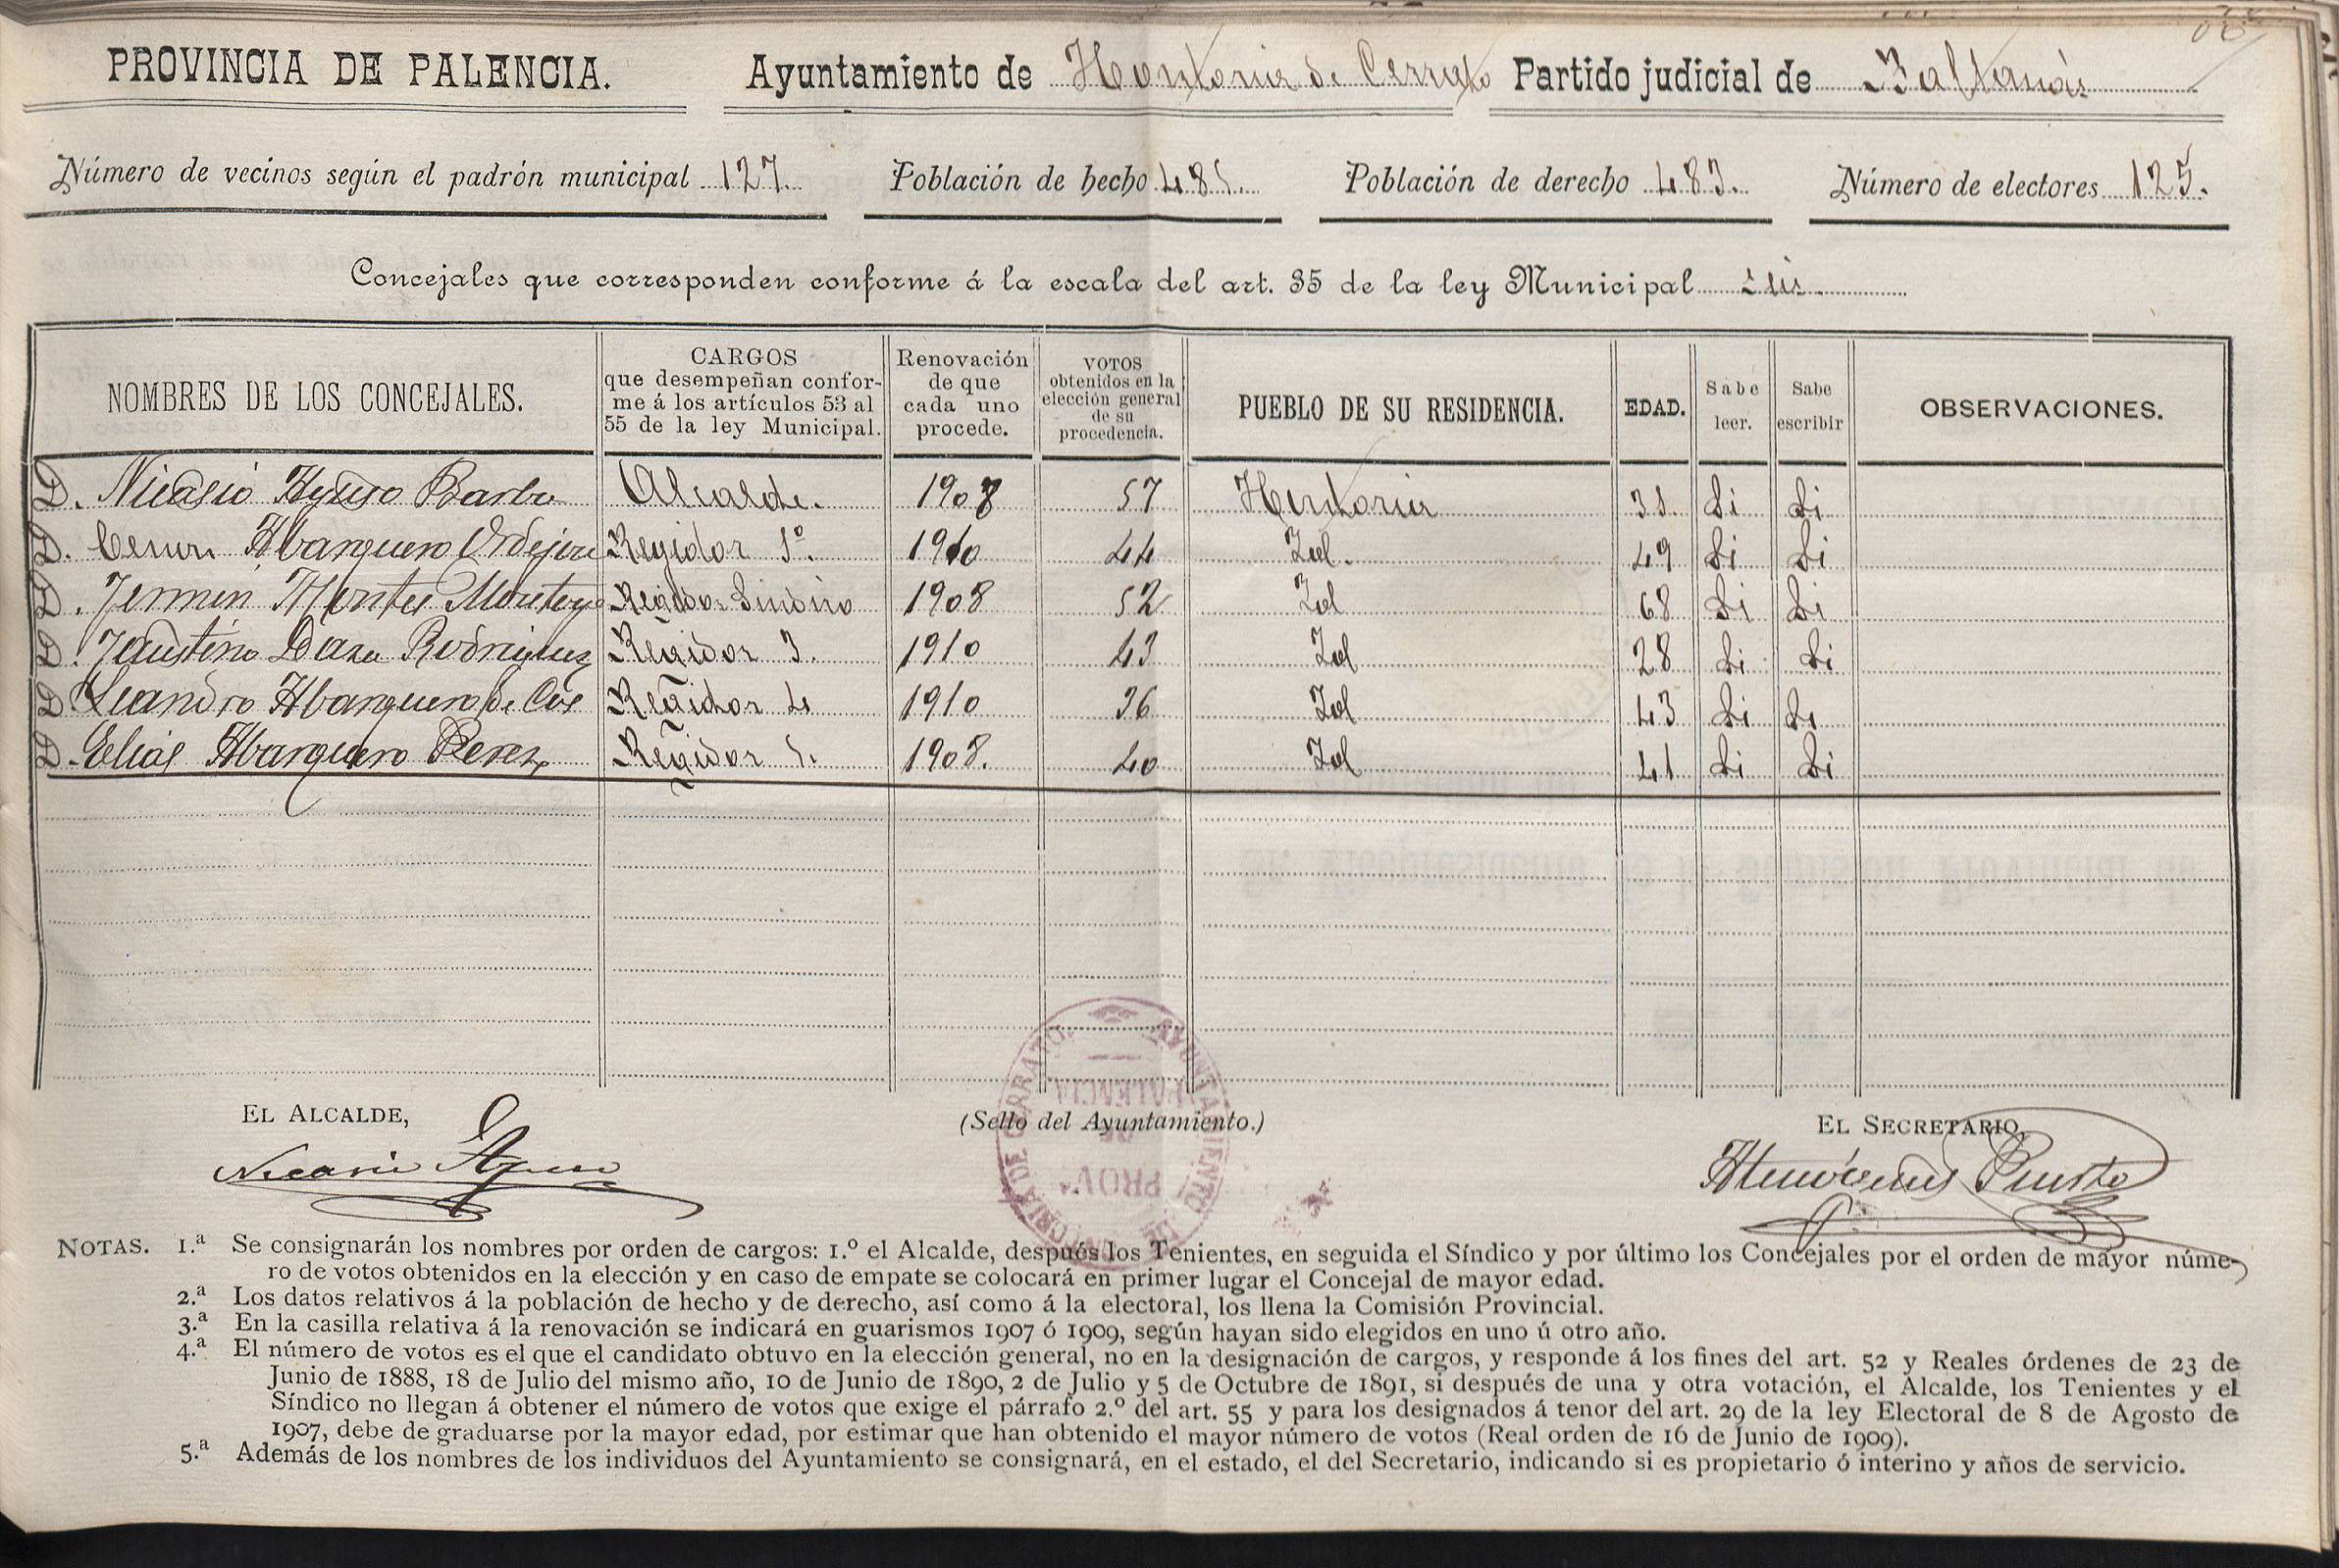 PROVINCIA DE PALENCIA. Ayuntamiento de Hontoria de Cerrato Partido judicial de Baltanás
Número de vecinos según el padrón municipal 127. Población de hecho 485. Población de derecho 483. Número de electores 125.
Concejales que corresponden conforme á la escala del art. 35 de la ley Municipal seis
NOMBRES DE LOS CONCEJALES. CARGOS que desempeñan conforme á los artículos 53 al 55 de la ley Municipal. Renovación de que cada uno procede. VOTOS obtenidos en la elección general de su procedencia. PUEBLO DE SU RESIDENCIA. EDAD. Sabe leer. Sabe escribir OBSERVACIONES.
D. Nicasio Ayuso Barba Alcalde. 1908 57 Hontoria Si Si
D. Abarquero Regidor 1º. 1910 44 Id. 49 Si Si
D. Fermin Montes Montoya Regidor Sindico 1908 52 Id 68 Si Si
D. Faustino Daza Rodriguez Regidor 3. 1910 43 Id 28 Si Si
D. Leandro Abarquero de Cos Regidor 4 1910 36 Id 43 Si Si
D. Elias Abarquero Perez Regidor 5. 1908. 40 Id 41 Si Si
EL ALCALDE, (Sello del Ayuntamiento.) EL SECRETARIO,
Nicasio Ayuso
AYUNTAMIENTO DE HONTORIA DE CERRATO.
PROVª DE PALENCIA
NOTAS. 1.ª Se consignarán los nombres por orden de cargos: 1.º el Alcalde, después los Tenientes, en seguida el Síndico y por último los Concejales por el orden de mayor núme-
ro de votos obtenidos en la elección y en caso de empate se colocará en primer lugar el Concejal de mayor edad.
2.ª Los datos relativos á la población de hecho y de derecho, así como á la electoral, los llena la Comisión Provincial.
3.ª En la casilla relativa á la renovación se indicará en guarismos 1907 ó 1909, según hayan sido elegidos en uno ú otro año.
4.ª El número de votos es el que el candidato obtuvo en la elección general, no en la designación de cargos, y responde á los fines del art. 52 y Reales órdenes de 23 de
Junio de 1888, 18 de Julio del mismo año, 10 de Junio de 1890, 2 de Julio y 5 de Octubre de 1891, si después de una y otra votación, el Alcalde, los Tenientes y el
Síndico no llegan á obtener el número de votos que exige el párrafo 2.º del art. 55 y para los designados á tenor del art. 29 de la ley Electoral de 8 de Agosto de
1907, debe de graduarse por la mayor edad, por estimar que han obtenido el mayor número de votos (Real orden de 16 de Junio de 1909).
5.ª Además de los nombres de los individuos del Ayuntamiento se consignará, en el estado, el del Secretario, indicando si es propietario ó interino y años de servicio.